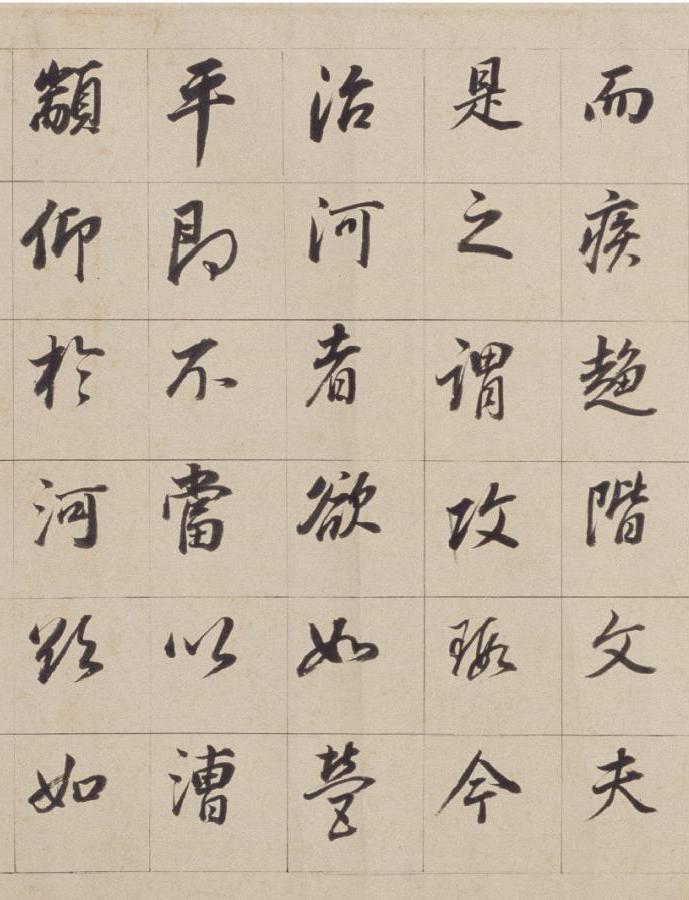 而疾趨階文夫
是之謂攻瑕今
治河者欲如營
平即不當以漕
顓仰於河欲如